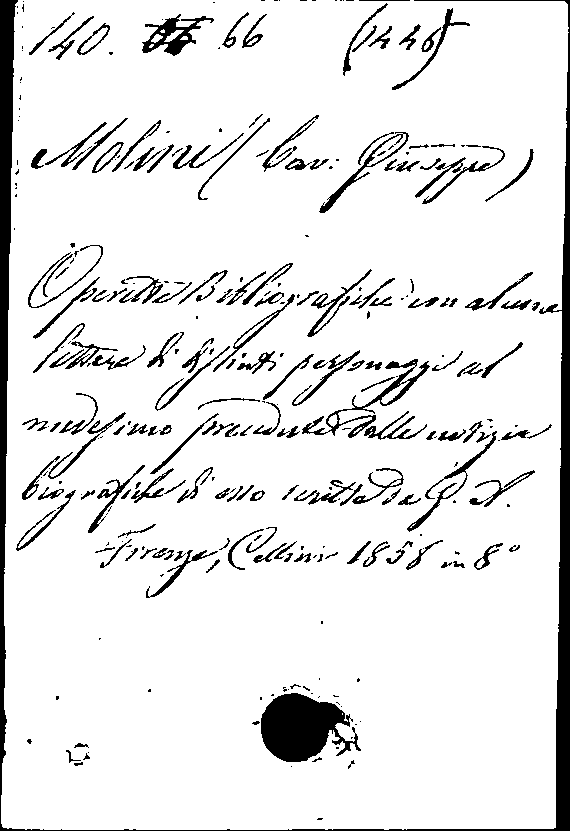 140. 66 (1446)
Molini (Cav: Giuseppe)
Operette Bibliografiche con alcune
lettere di distinti personaggi al
medesimo precedute dalle notizie
biografiche di esso scritte da G. A.
Firenze, Cellini 1858 in 8°